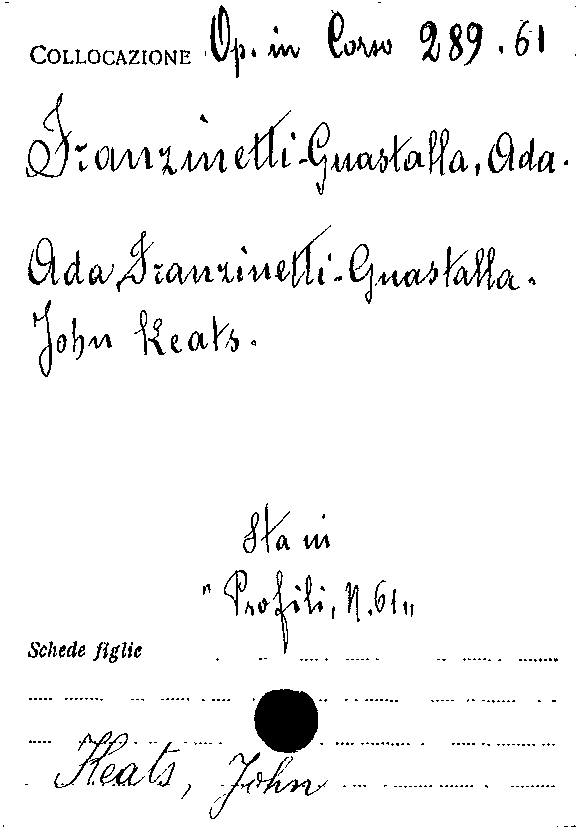 COLLOCAZIONE Op. in Corso 289.61
Franzinetti-Guastalla, Ada.
Ada Franzinetti-Guastalla.
John Keats.
Sta in
"Profili, N.61"
Schede figlie
Keats, John